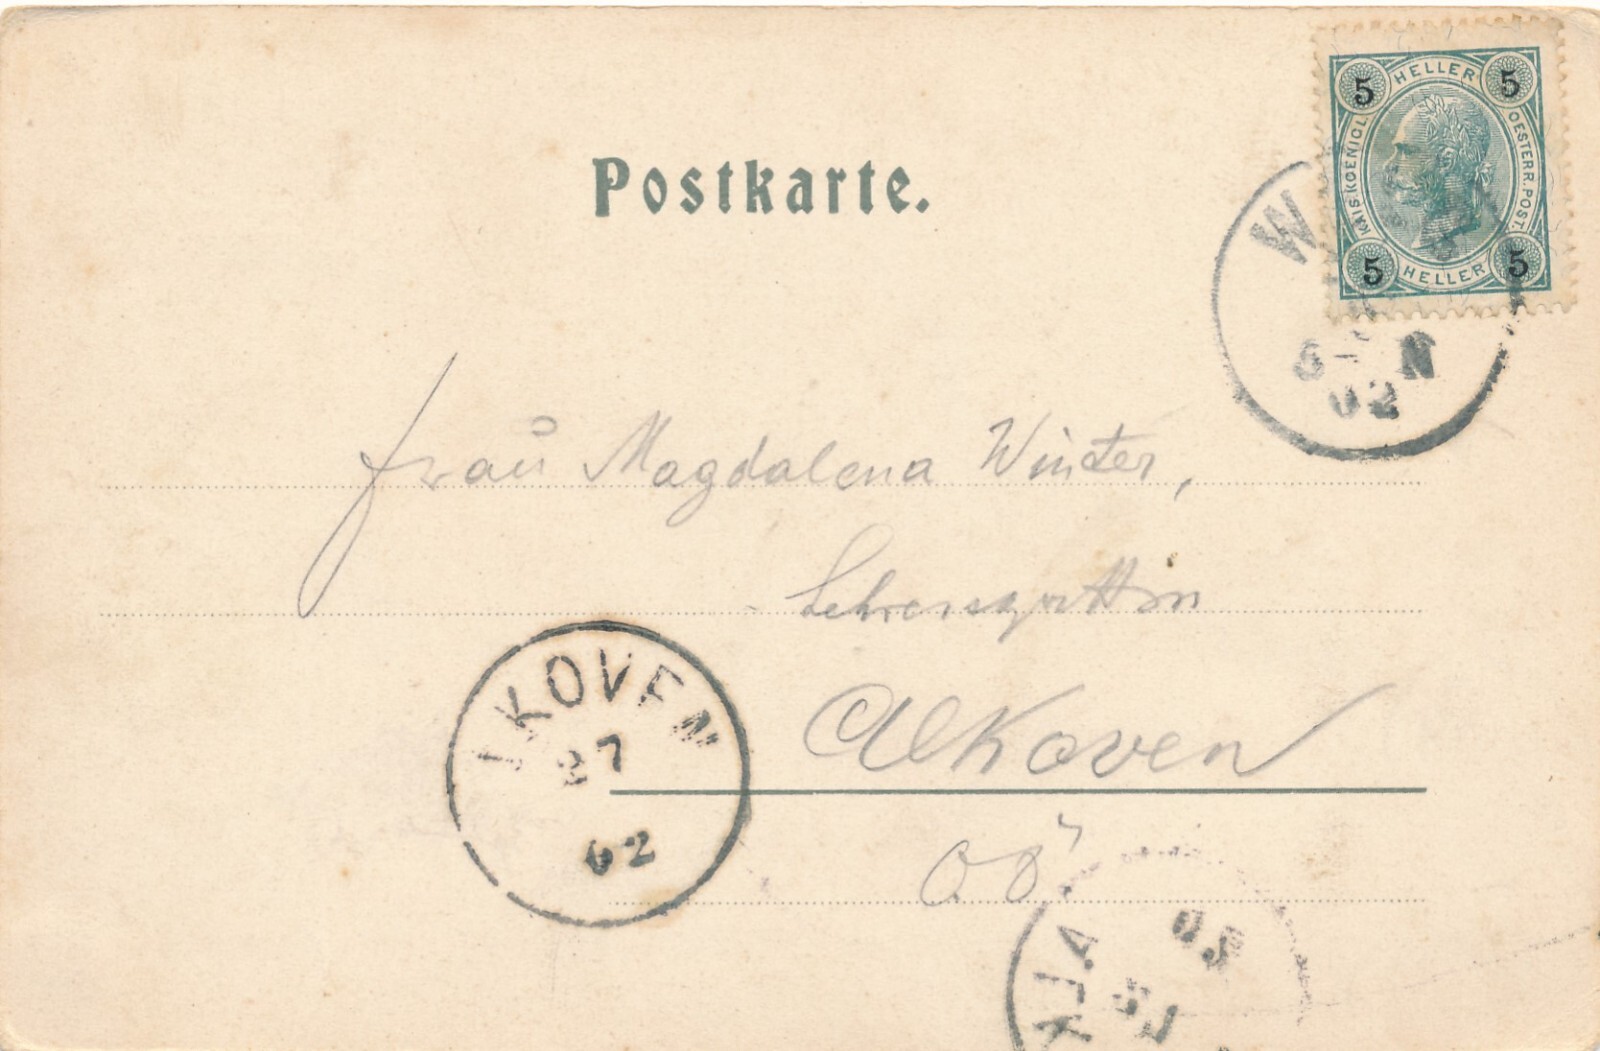 Postkarte.
5 HELLER 5
KAIS. KOENIGL.
OESTERR. POST.
5 HELLER 5
W
N
02
Frau Magdalena Winter,
Lehrersgattin
Alkoven
O.Ö.
LKOVEN
27
02
ALK
27
02